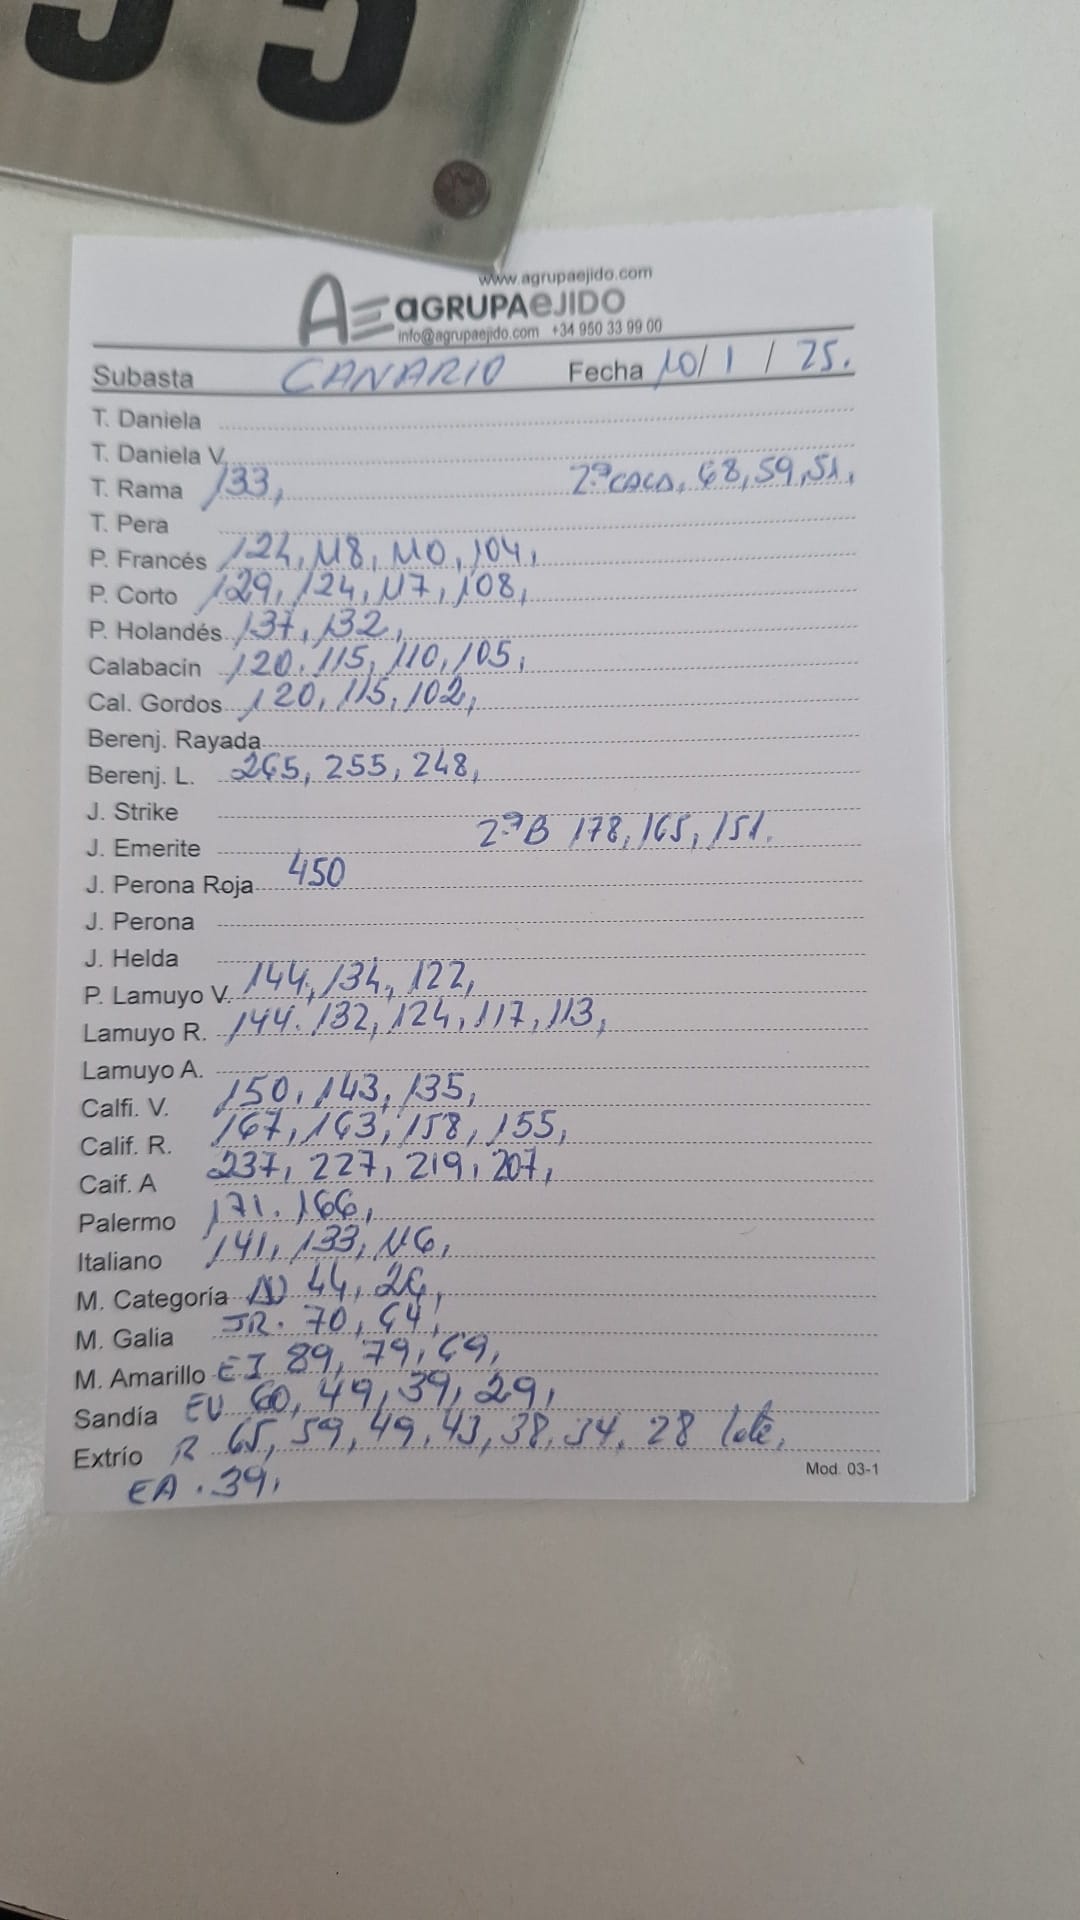 55
www.agrupaejido.com
AE aGRUPAeJIDO
info@agrupaejido.com +34 950 33 99 00
Subasta CANARIO Fecha 10/1/25.
T. Daniela
T. Daniela V.
T. Rama 133, 2ª CACA, 68, 59, 51,
T. Pera
P. Francés 124, 118, 110, 104,
P. Corto 129, 124, 117, 108,
P. Holandés 137, 132,
Calabacín 120. 115, 110, 105,
Cal. Gordos 120, 115, 102,
Berenj. Rayada
Berenj. L. 265, 255, 248,
J. Strike
J. Emerite 2ª B 178, 165, 151.
J. Perona Roja 450
J. Perona
J. Helda
P. Lamuyo V. 144, 134, 122,
Lamuyo R. 144. 132, 124, 117, 113,
Lamuyo A.
Calfi. V. 150, 143, 135,
Calif. R. 167, 163, 158, 155,
Caif. A 237, 227, 219, 207,
Palermo 171. 166,
Italiano 141, 133, 116,
M. Categoría 44, 26,
M. Galia JR. 70, 64,
M. Amarillo EI 89, 79, 69,
Sandía EV 60, 49, 39, 29,
Extrío R 65, 59, 49, 43, 38, 34, 28
EA. 39,
Mod. 03-1